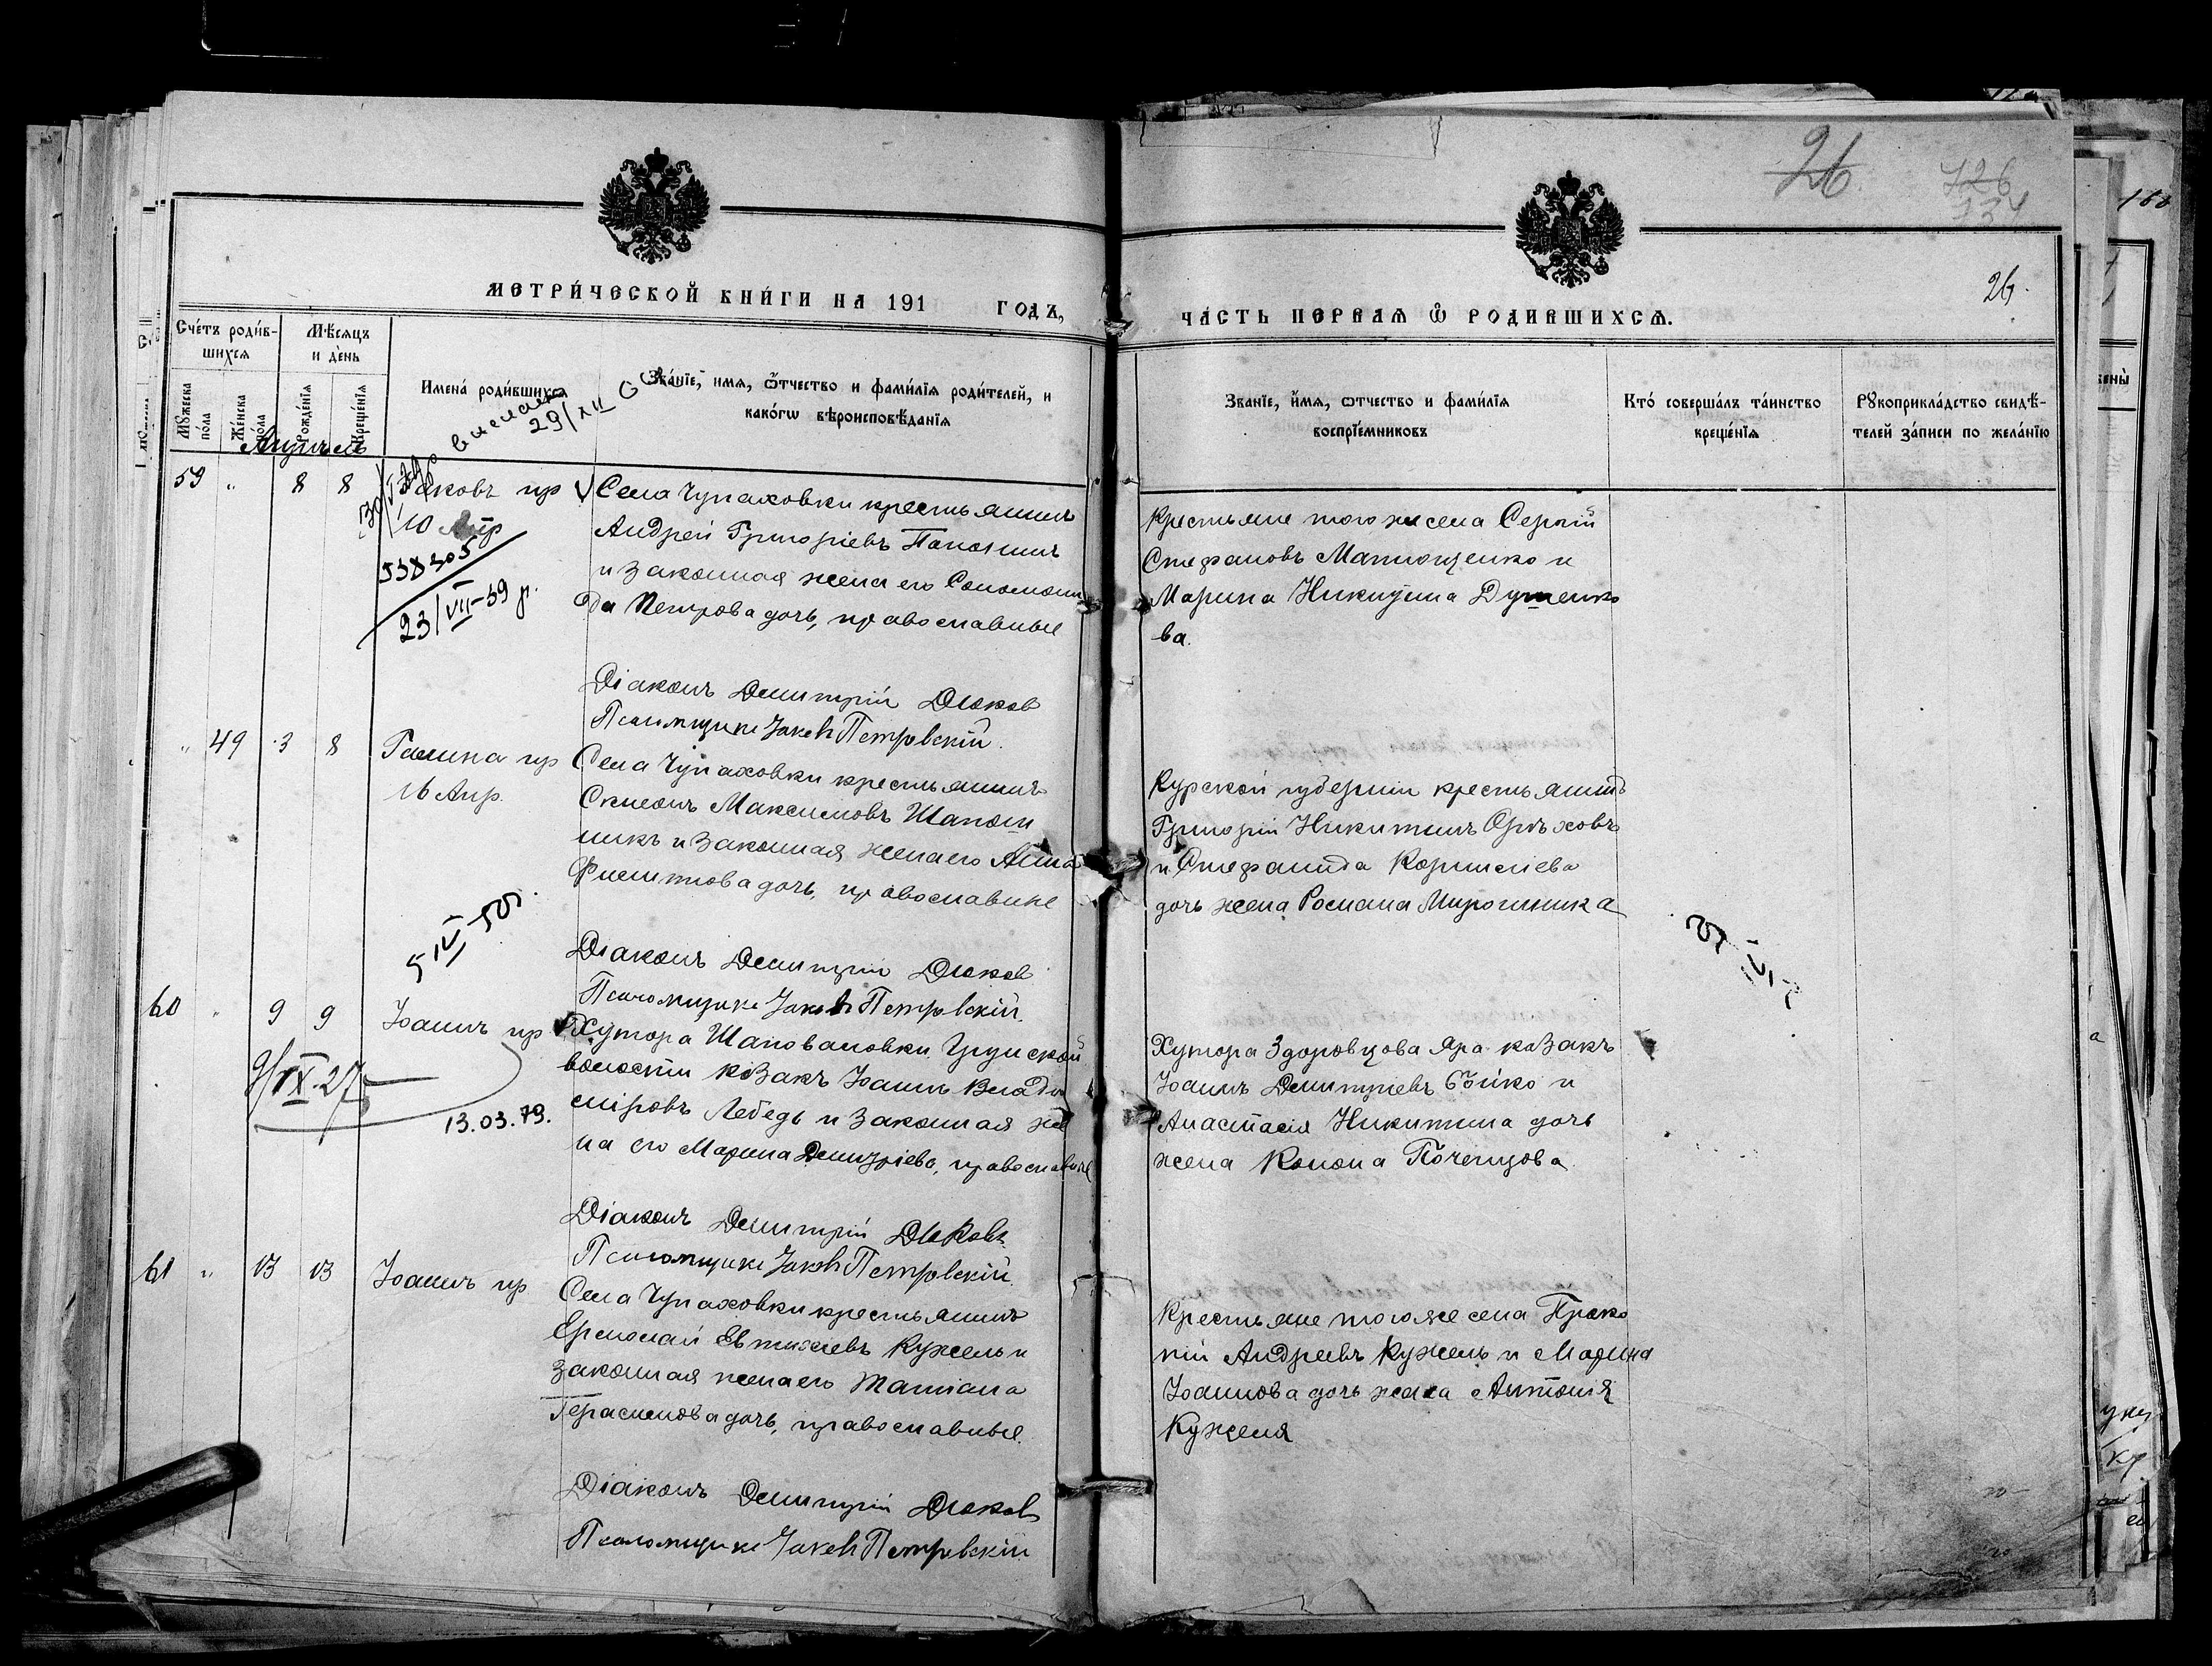 26.
726
734
МЕТРИ́ЧЕСКОЙ КНИ́ГИ НА 191 ГОДЪ,
ЧА́СТЬ ПЕРВАЯ Ѽ РОДИ́ВШИХСЯ.
26.
Сче́тъ роди́в-
шихся
Мѣ́сяцъ
и де́нь
Имена́ роди́вшихся
Зва́нїе, имя, ѻ҆тчество и фами́лїя роди́телей, и
како́гѡ вѣроисповѣ́данїя
Зва́нїе, и҆мя, ѻтчество и фами́лїя
воспрїе́мниковъ
Кто́ соверша́лъ та́инство
креще́нїя
Рꙋкоприкла́дство свидѣ́-
телей за́писи по жела́нїю
Мꙋ́жеска
по́ла
Же́нска
по́ла
Рожде́нїя
Креще́нїя
29/XII
Апрѣль
59 " 8 8 Іаковъ пр
10 Апр
538305
23/VII-39 р.
Села Чупаховки крестьянинъ
Андрей Григоріевъ
и законная жена его Соломони
да Петрова дочь, православные
Крестьяне того же села Сергій
Стефановъ Матющенко и
Марина Никитина
ва.
Діаконъ Димитрій Дюков
Псаломщикъ Іаковъ Петровскій.
" 49 3 8 Галина пр
16 Апр.
Села Чупаховки крестьянинъ
Симеонъ Максимовъ Шапош
никъ и законная жена его Анна
Филиппова дочь, православные
Курской губерніи крестьянинъ
Григорій Никитинъ Орѣховъ
и Стефанида Корнилієва
дочь жена Романа Мирошника
5 IV-50г.
Діаконъ Димитрій Дюков
Псаломщикъ Іаковъ Петровскій.
60 " 9 9 Іоаннъ пр
9/IX-27
13.03.79.
Хутора Шаповаловки Грунской
волости козакъ Іоаннъ Влади
міровъ Лебедь и законная же
на его Марина Димитріева, православные
Хутора Здоровцова Яра козакъ
Іоаннъ Димитріевъ Бойко и
Анастасія Никитина дочь
жена Конона Почепцова
Діаконъ Димитрій Дюковъ
Псаломщикъ Іаковъ Петровскій.
61 " 13 13 Іоаннъ пр
Села Чупаховки крестьянинъ
Ермолай Евтихіевъ Кужель и
законная жена его Татіана
Герасимова дочь, православные.
Крестьяне того же села Проко
пій Андреевъ Кужель и Марина
Іоаннова дочь жена Антонія
Кужеля
Діаконъ Димитрій Дюков
Псаломщикъ Іаковъ Петровскій